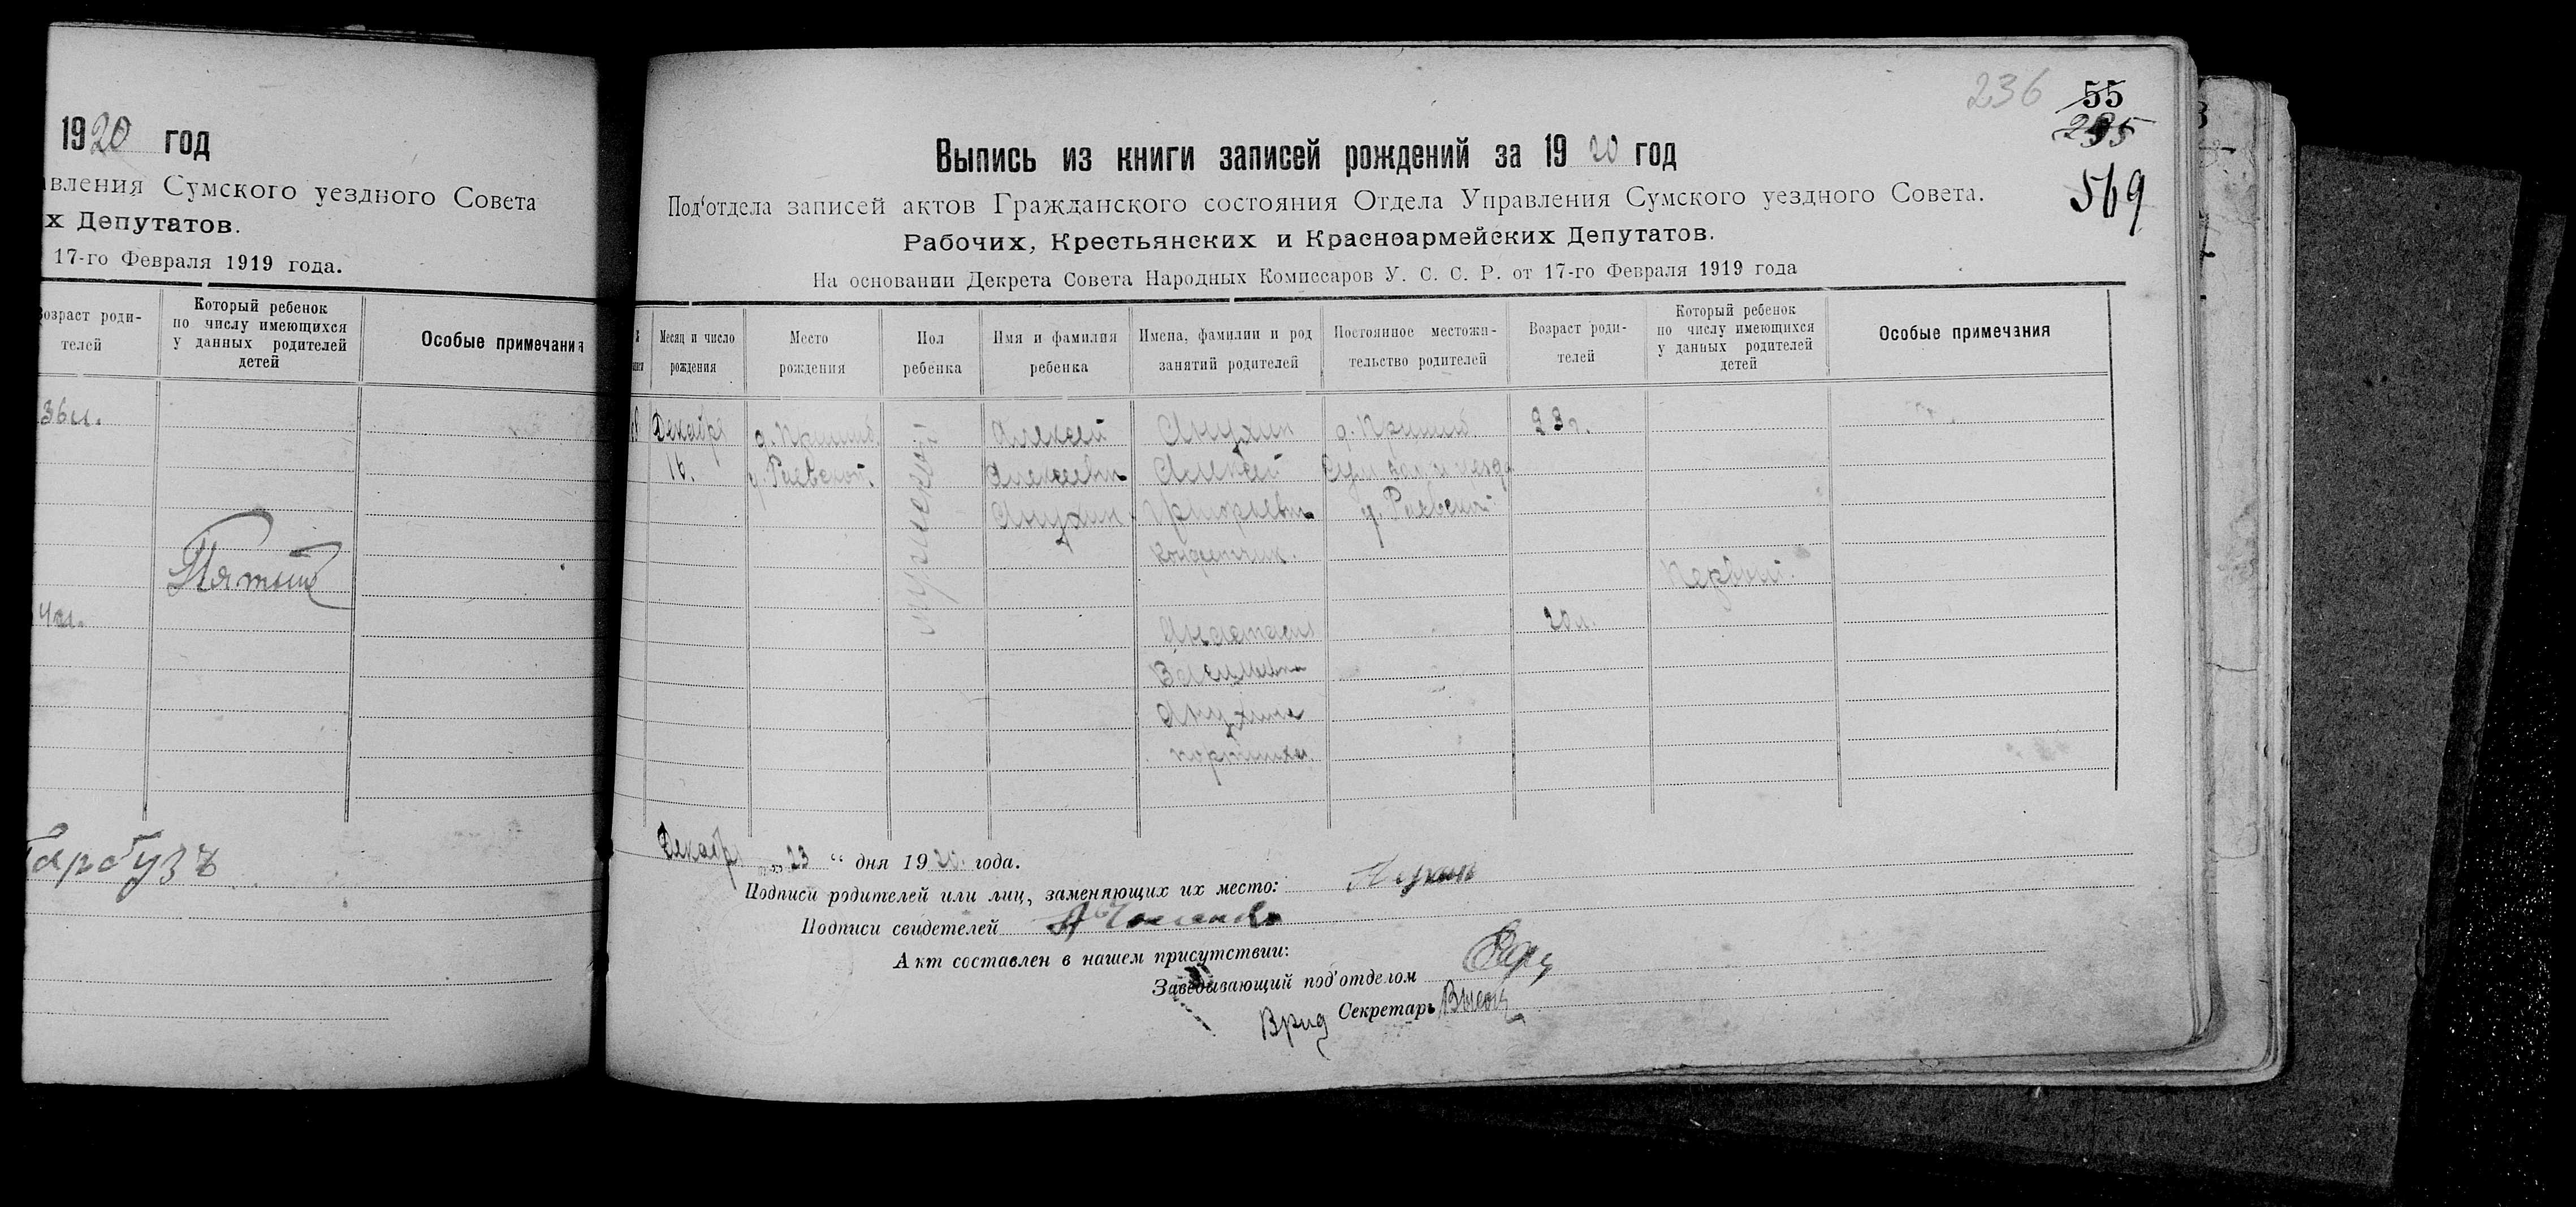 1920 год
вления Сумского уездного Совета
х Депутатов.
17-го Февраля 1919 года.
озраст роди-
телей
Который ребенок
по числу имеющихся
у данных родителей
детей
Особые примечания
36 л.
Пятый
4 л.
Гарбузъ
236
55
295
569
Выпись из книги записей рождений за 1920 год
Под'отдела записей актов Гражданского состояния Отдела Управления Сумского уездного Совета.
Рабочих, Крестьянских и Красноармейских Депутатов.
На основании Декрета Совета Народных Комиссаров У. С. С. Р. от 17-го Февраля 1919 года
Месяц и число
рождения
Место
рождения
Пол
ребенка
Имя и фамилия
ребенка
Имена, фамилии и род
занятий родителей
Постоянное местожи-
тельство родителей
Возраст роди-
телей
Который ребенок
по числу имеющихся
у данных родителей
детей
Особые примечания
Декабря
16.
у. Раевской.
мужской
Алексей
Алексеевич
Анухин
Анухин
Алексей
Григорьевич
конфетчик.
у. Раевской
23 г.
Первый.
Анастасия
Васильевна
Анухина
портниха.
20 л.
Декабря „23“ дня 1920 года.
Подписи родителей или лиц, заменяющих их место:
Подписи свидетелей
Акт составлен в нашем присутствии:
Заведывающий под'отделом
Врид Секретарь